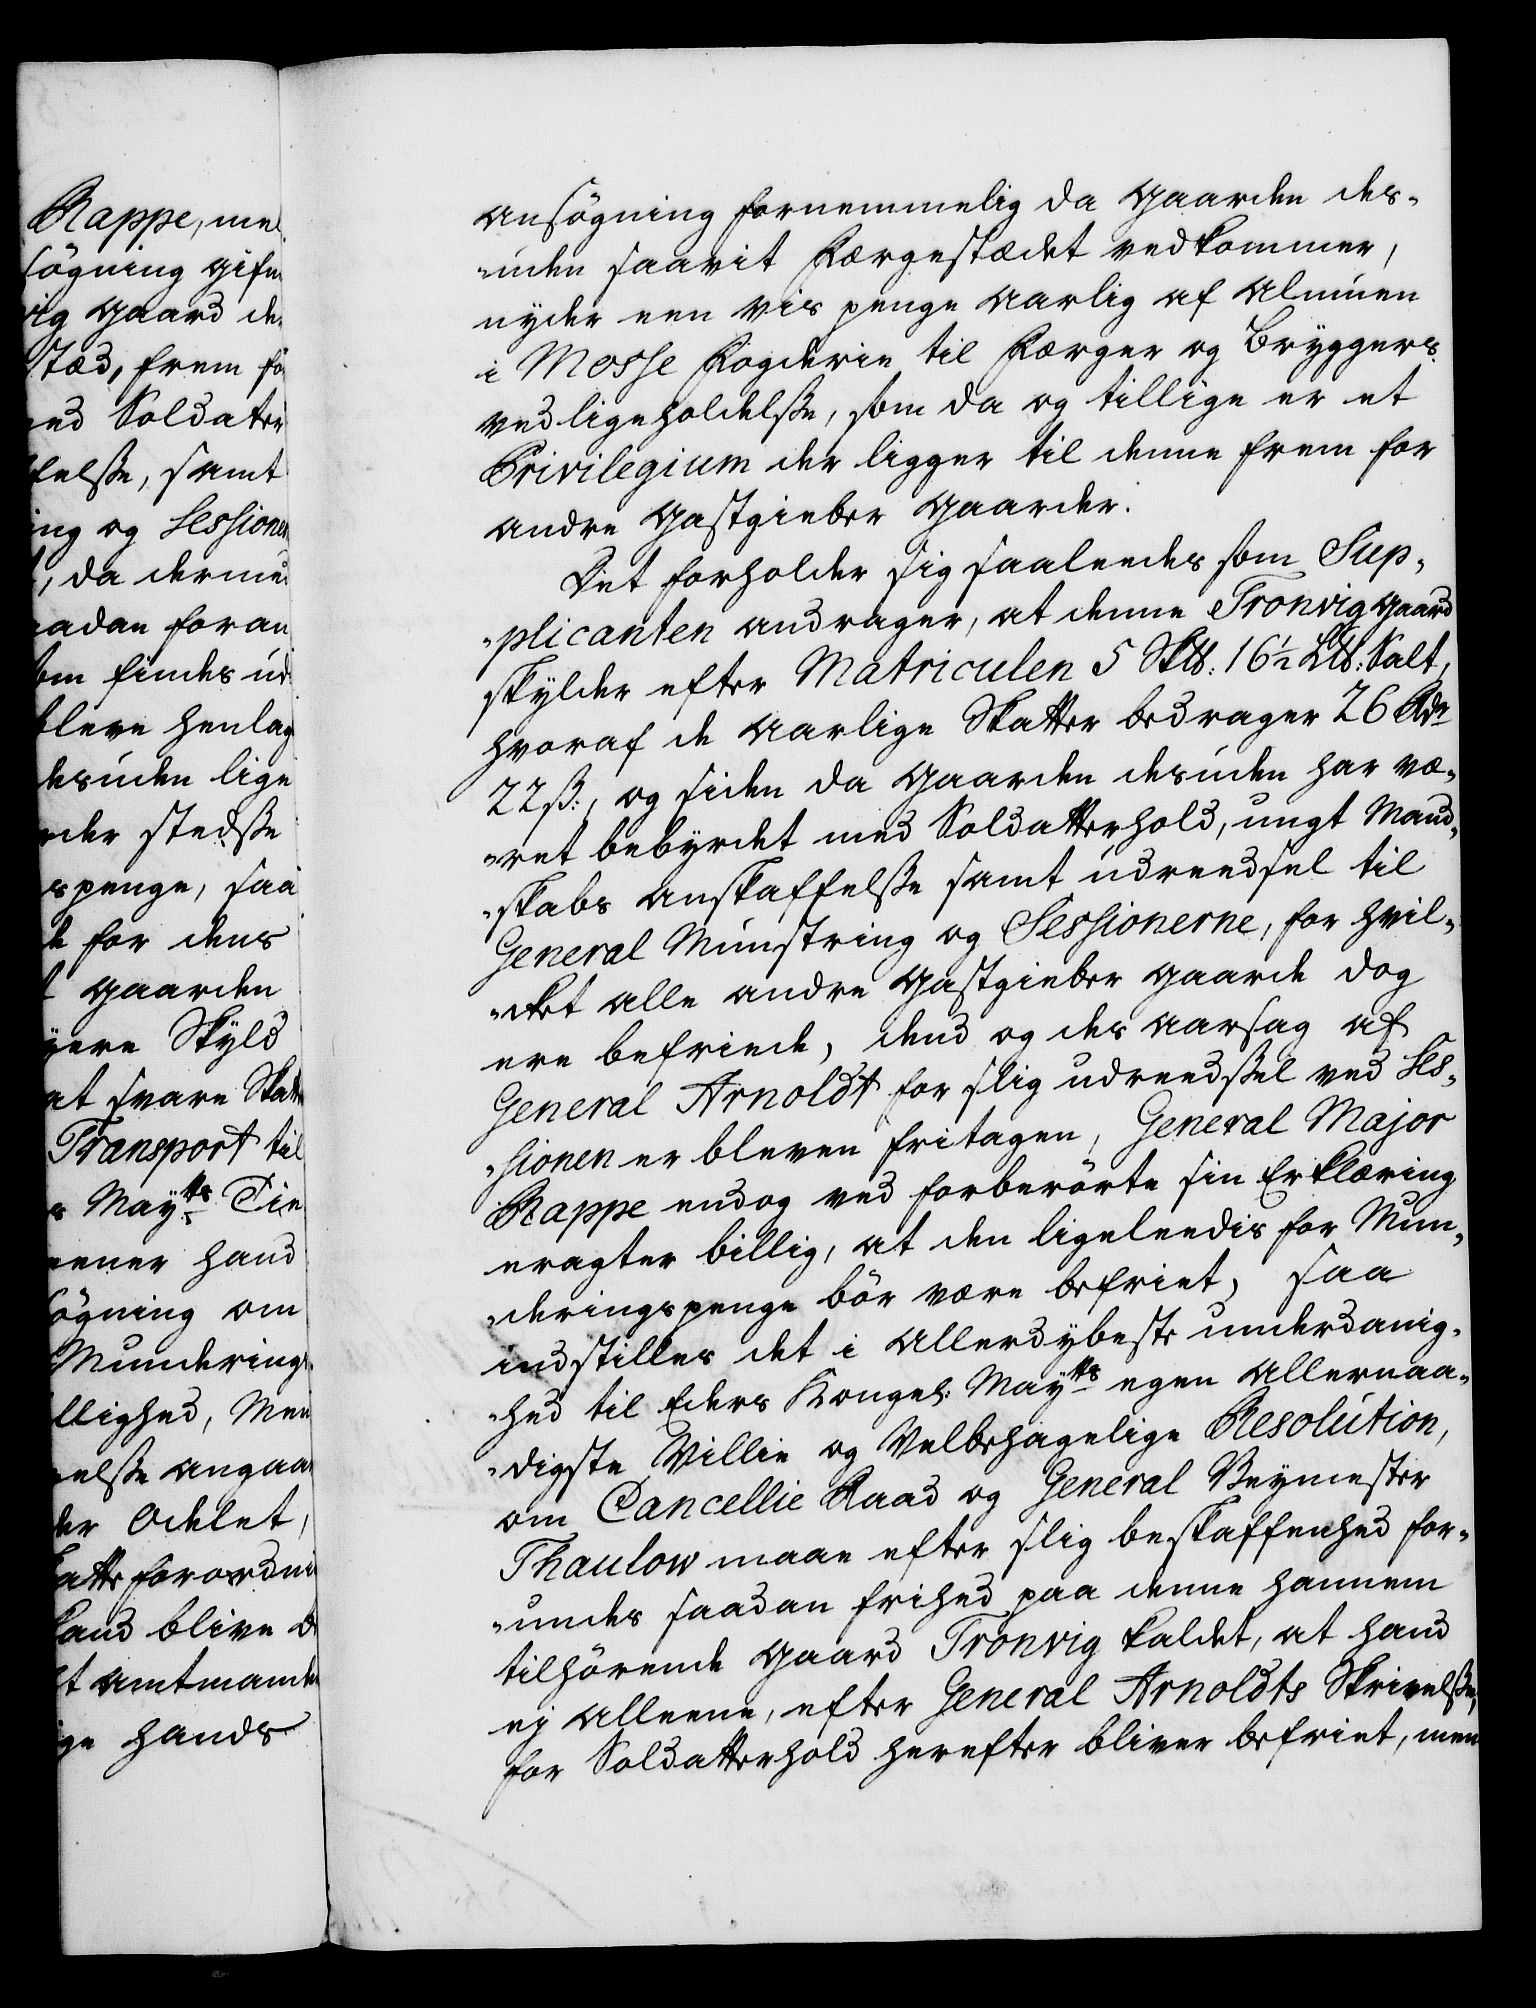 Rappe, med
søgning gifn
vig Gaard de
stæd, frem fo
med Soldater
felsse, samt
ing og Sessionen
, da dermed
saadan foran
som findes ud
bleve henlag
desuden lige
nder stedsse
spenge, saa
de for dens
t Gaarden
yere Skyld
at svare Skatt
Transport til
s Mayts Tie
eener hand
søgning om
Munderings
llighed, Men
nelsse angaa
der Odelet,
Skatte forordni
kand blive
t Amtmande
ge hands
Ansøgning fornemmelig da Gaarden des-
-uden saavit Færgestædet vedkommer,
nyder een vis penge Aarlig af Almuen
i Mosse Fogderie til Færger og Bryggers
vedligeholdelsse, som da og tillige er et
Privilegium der ligger til denne frem for
andre Gastgieber Gaarder.
Det forholder sig saaleedes som Sup-
-plicanten andrager, at denne Tronvig Gaard
skylder efter Matriculen 5 Sk℔: 16½ L℔: Salt,
hvoraf de Aarlige Skatter bedrager 26 Rdr
22 ß:, og siden da Gaarden desuden har væ-
-ret bebyrdet med Soldatterhold, ungt Mand-
-skabs Anskaffelsse samt udreedsel til
General Munstring og Sessionerne, for hvil-
-cket alle andre Gastgieber Gaarde dog
ere befriede, dend og des Aarsag af
General Arnoldt for slig udreedssel ved Ses-
-sionen er bleven fritagen, General Major
Rappe endog ved forberørte sin Erklæring
eragter billig, at den ligeleedis for Mun-
-deringspenge bør være befriet, saa
indstilles det i Allerdybeste underdanig-
-hed til Eders Kongel: Mayts egen Allernaa-
-digste Villie og Velbehagelige Resolution,
om Cancellie Raad og General Veymester
Thaulow maae efter slig beskaffenhed for-
-undes saadan frihed paa denne hannem
tilhørende Gaard Tronvig kaldet, at hand
ej Alleene, efter General Arnoldts Skrivelsse,
for Soldatterhold herefter bliver befriet, men